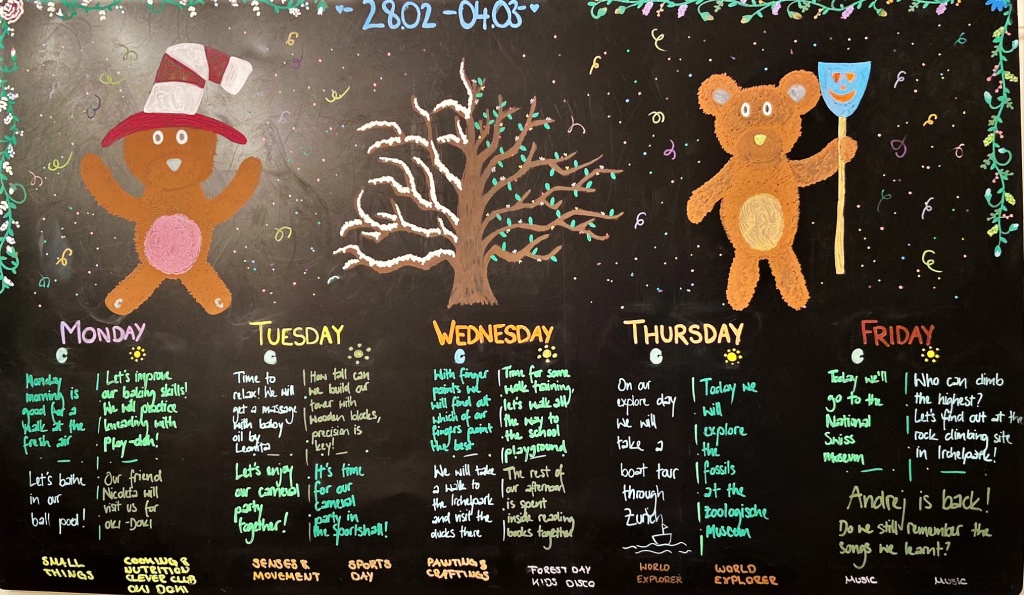 28.02 - 04.03
MONDAY
Monday
morning is
good for a
walk at the
fresh air
Let's bathe
in our
ball pool!
Let's improve
our baking skills!
We will practice
kneading with
play-doh!
Our friend
Nicoleta will
visit us for
Oki-Doki!
SMALL
THINGS
COOKING &
NUTRITION
CLEVER CLUB
OKI DOKI
TUESDAY
Time to
relax! We will
get a massage
with baby
oil by
Leonita
Let's enjoy
our carneval
party
together!
How tall can
we build our
tower with
wooden blocks,
precision is
key!
It's time
for our
carneval
party in
the sportshall!
SENSES &
MOVEMENT
SPORTS
DAY
WEDNESDAY
With finger
paints we
will find out
which of our
fingers paint
the best
We will take
a walk to
the Irchelpark
and visit the
ducks there
Time for some
walk training,
let's walk all
the way to
the school
playground
The rest of
our afternoon
is spent
inside reading
books together
PAINTING &
CRAFTINGS
FOREST DAY
KIDS DISCO
THURSDAY
On our
explore day
we will
take a
boat tour
through
Zurich
Today we
will
explore
the
fossils
at the
zoologische
Museum
WORLD
EXPLORER
WORLD
EXPLORER
FRIDAY
Today we'll
go to the
National
Swiss
Museum
Who can climb
the highest?
Let's find out at the
rock climbing site
in Irchelpark!
Andrej is back!
Do we still remember the
songs we learnt?
MUSIC
MUSIC